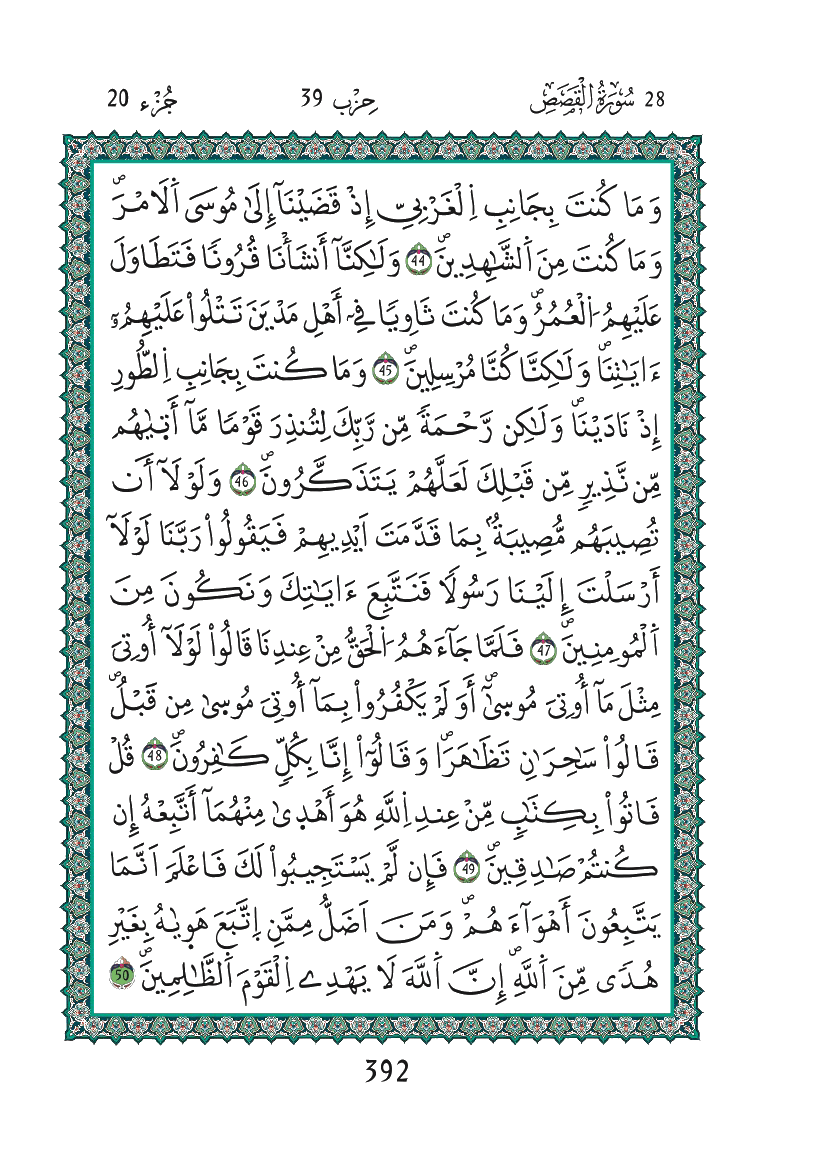 28 سُورَةُ الْقَصَصِ حِزْب 39 جُزْء 20
وَمَا كُنتَ بِجَانِبِ اِ۬لْغَرْبِيِّ إِذْ قَضَيْنَآ إِلَىٰ مُوسَى اَ۬لَامْرَۖ
وَمَا كُنتَ مِنَ اَ۬لشَّٰهِدِينَۖ 44 وَلَٰكِنَّآ أَنشَأْنَا قُرُونًا فَتَطَاوَلَ
عَلَيْهِمُ اُ۬لْعُمُرُۖ وَمَا كُنتَ ثَاوِيًا فِےٓ أَهْلِ مَدْيَنَ تَتْلُواْ عَلَيْهِمُۥٓ
ءَايَٰتِنَاۖ وَلَٰكِنَّا كُنَّا مُرْسِلِينَۖ 45 وَمَا كُنتَ بِجَانِبِ اِ۬لطُّورِ
إِذْ نَادَيْنَاۖ وَلَٰكِن رَّحْمَةً مِّن رَّبِّكَ لِتُنذِرَ قَوْمًا مَّآ أَت۪يٰهُم
مِّن نَّذِيرٍ مِّن قَبْلِكَ لَعَلَّهُمْ يَتَذَكَّرُونَۖ 46 وَلَوْلَآ أَن
تُصِيبَهُم مُّصِيبَةُۢ بِمَا قَدَّمَتَ اَيْدِيهِمْ فَيَقُولُواْ رَبَّنَا لَوْلَآ
أَرْسَلْتَ إِلَيْنَا رَسُولًا فَنَتَّبِعَ ءَايَٰتِكَ وَنَكُونَ مِنَ
اَ۬لْمُومِنِينَۖ 47 فَلَمَّا جَآءَهُمُ اُ۬لْحَقُّ مِنْ عِندِنَا قَالُواْ لَوْلَآ أُوتِىَ
مِثْلَ مَآ أُوتِىَ مُوس۪ىٰٓۖ أَوَلَمْ يَكْفُرُواْ بِمَآ أُوتِىَ مُوس۪ىٰ مِن قَبْلُۖ
قَالُواْ سَٰحِرَٰنِ تَظَٰهَرَاۖ وَقَالُوٓاْ إِنَّا بِكُلٍّ كَٰفِرُونَۖ 48 قُلْ
فَاتُواْ بِكِتَٰبٍ مِّنْ عِندِ اِ۬للَّهِ هُوَ أَهْد۪ىٰ مِنْهُمَآ أَتَّبِعْهُ إِن
كُنتُمْ صَٰدِقِينَۖ 49 فَإِن لَّمْ يَسْتَجِيبُواْ لَكَ فَاعْلَمَ اَنَّمَا
يَتَّبِعُونَ أَهْوَآءَهُمْۖ وَمَنَ اَضَلُّ مِمَّنِ اِ۪تَّبَعَ هَو۪يٰهُ بِغَيْرِ
هُدًى مِّنَ اَ۬للَّهِۖ إِنَّ اَ۬للَّهَ لَا يَهْدِے اِ۬لْقَوْمَ اَ۬لظَّٰلِمِينَۖ 50
392